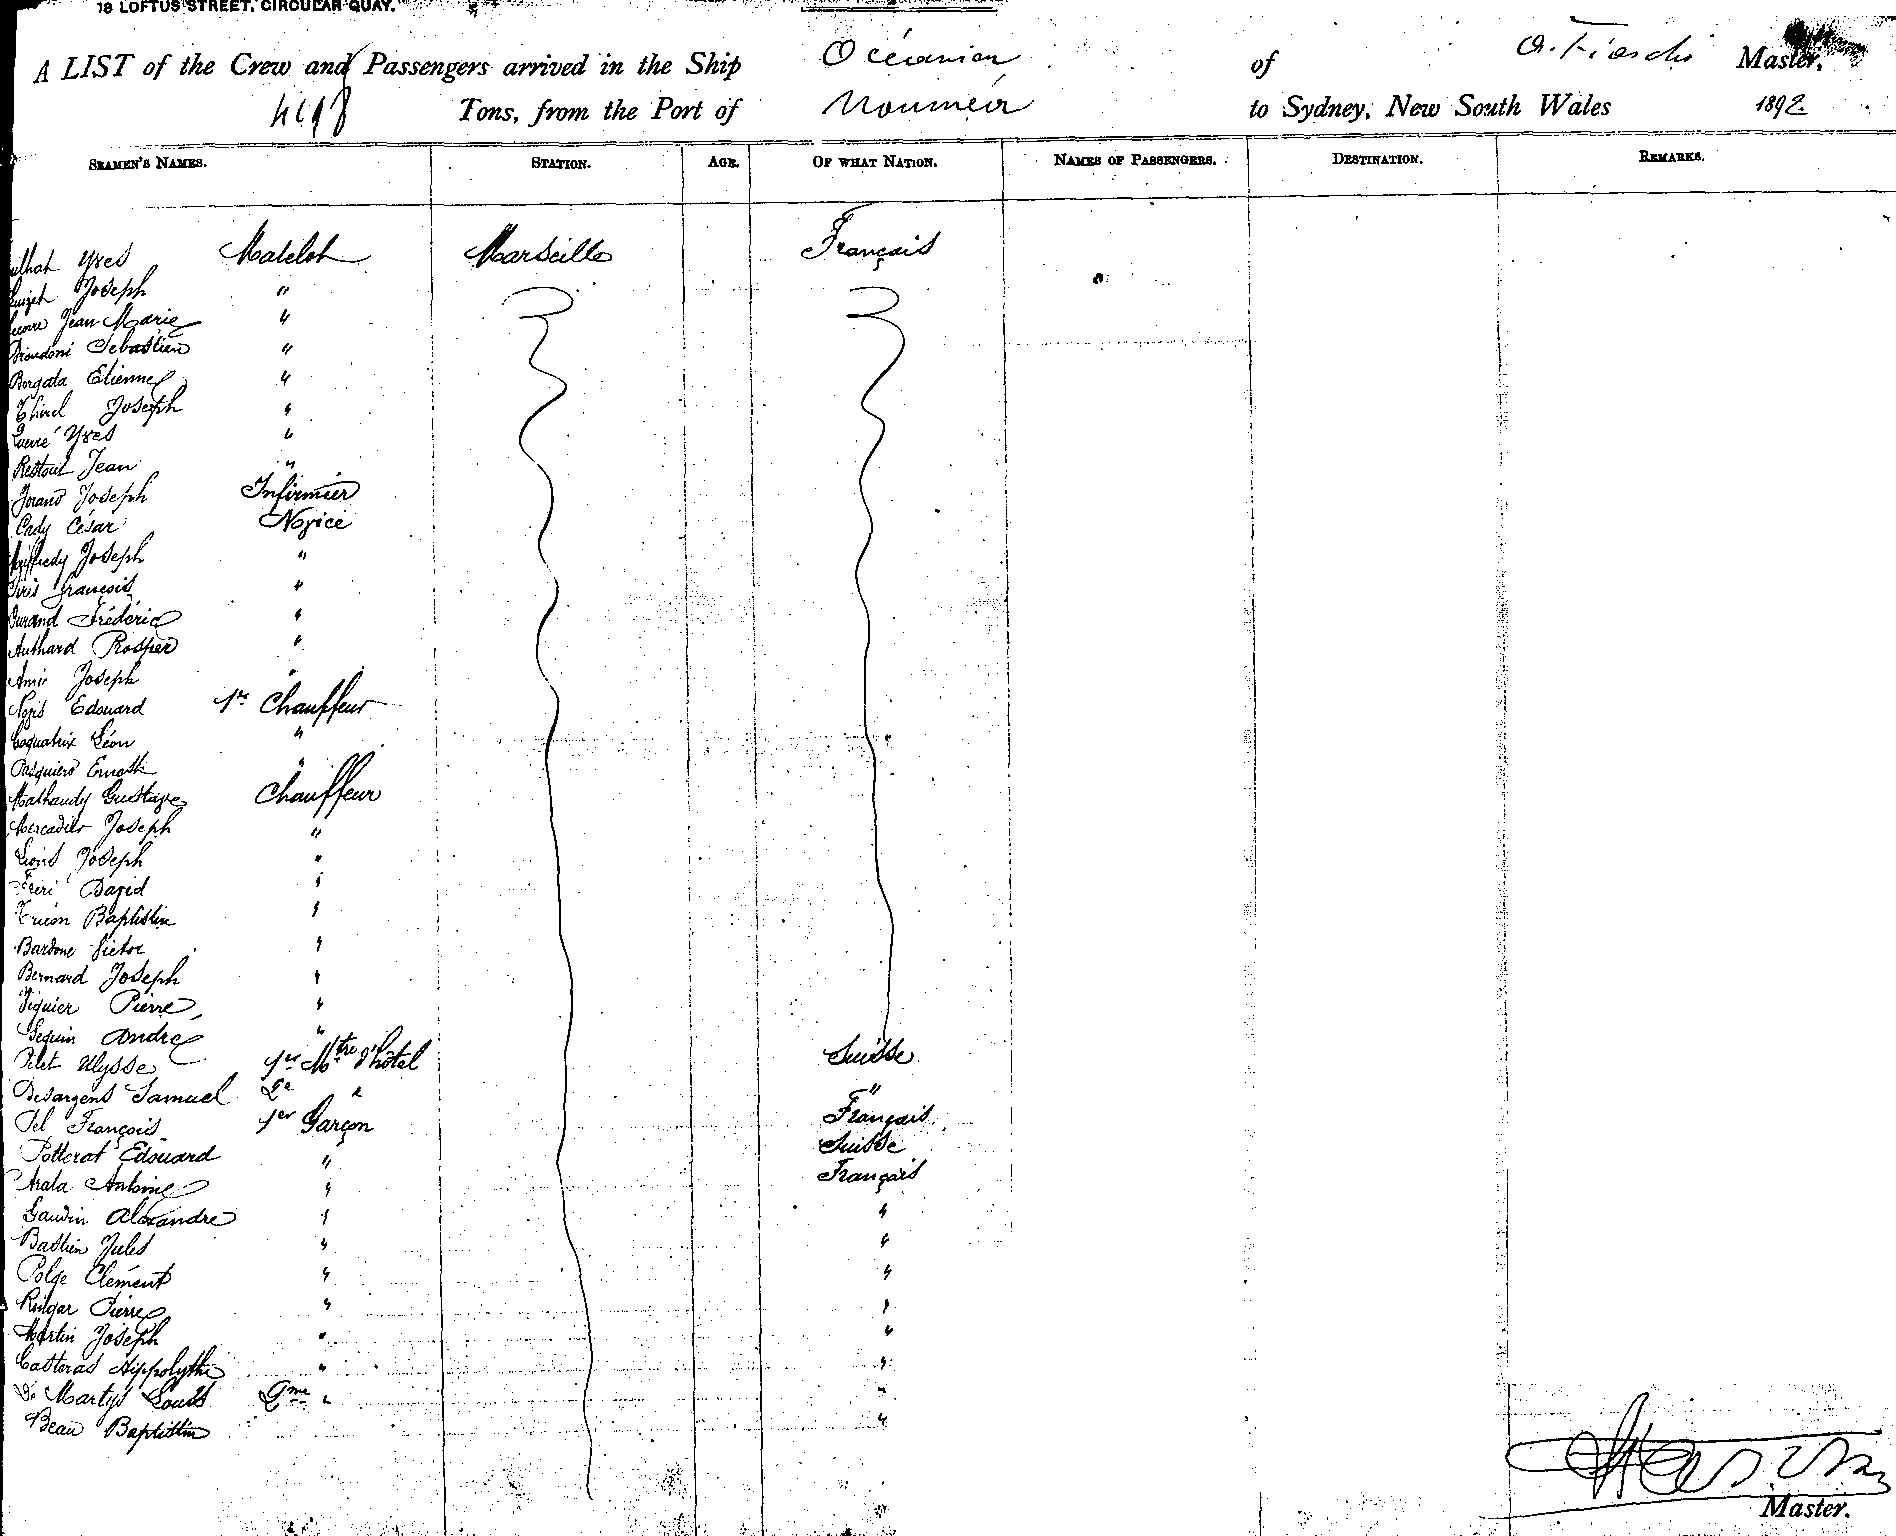 18 LOFTUS STREET, CIRCULAR QUAY.
A LIST of the Crew and Passengers arrived in the Ship Océanien of Master,
Tons, from the Port of Nouméa to Sydney, New South Wales 1892
SEAMEN'S NAMES. STATION. AGE. OF WHAT NATION. NAMES OF PASSENGERS. DESTINATION. REMARKS.
Yves Matelot Marseille Français
Joseph "
Jean Marie "
Sébastien "
Borgata Etienne "
Joseph "
Yves "
Restout Jean "
Joseph Infirmier
Cady César Novice
Joseph "
François "
Durand Frédéric "
Authard Prosper "
Joseph "
Edouard 1er Chauffeur
Coquatrix Léon "
Ernest "
Mathaudy Gustave Chauffeur
Mercadier Joseph "
Lions Joseph "
David "
Baptistin "
Bardone Victor "
Bernard Joseph "
Viguier Pierre "
Seguin André "
Pilet Ulysse 1er Mtre d'hôtel Suisse
Desargens Samuel 2e " "
Pel François 1er Garçon Français
Potterat Edouard " Suisse
Arata Antoine " Français
Gaudin Alexandre " "
Bastien Jules " "
Polge Clément " "
Pierre " "
Martin Joseph " "
Casteras Hippolythe " "
De Martys Louis 2me " "
Beau Baptistin "
Master.